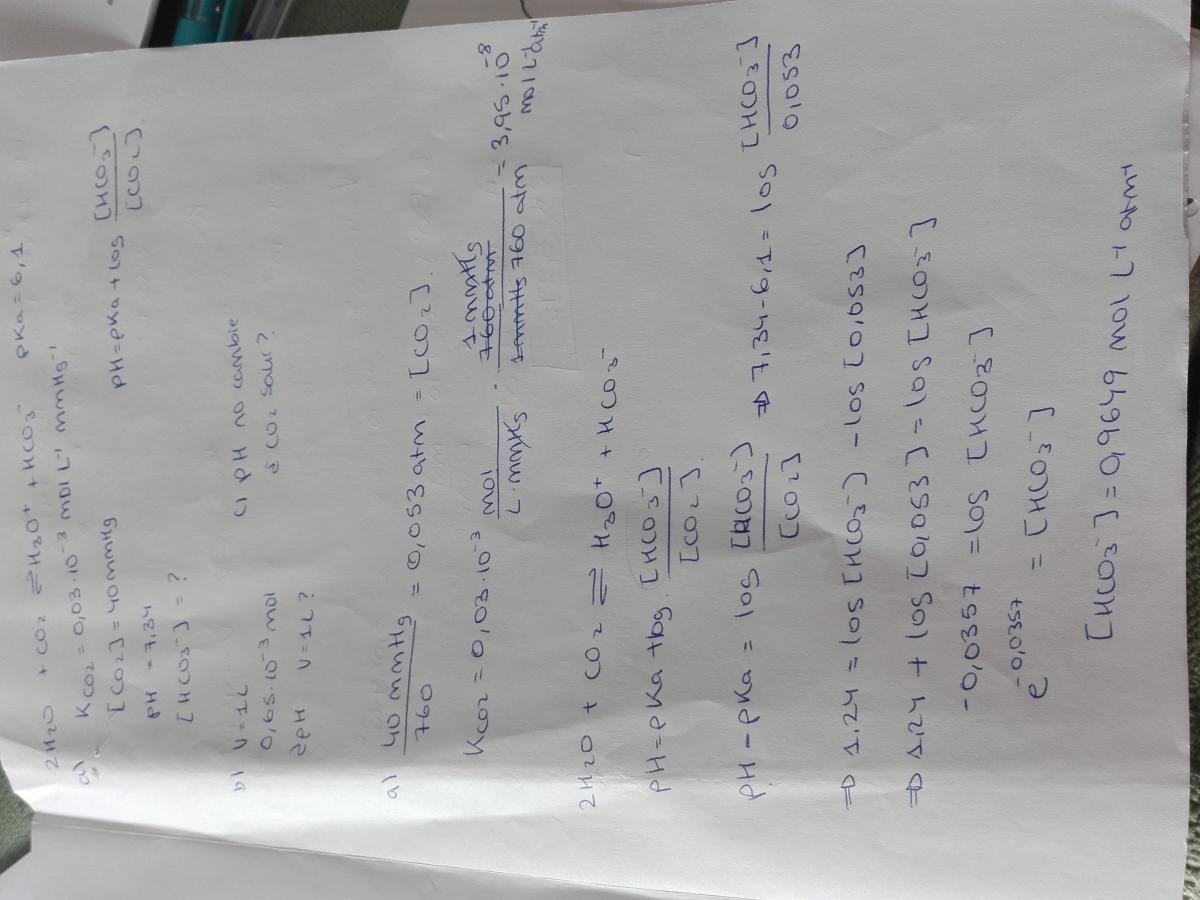 2H₂O + CO₂ ⇌ H₃O⁺ + HCO₃⁻ pKa = 6,1
a) K CO₂ = 0,03·10⁻³ mol L⁻¹ mmHg⁻¹
[CO₂] = 40 mmHg pH = pKa + log [HCO₃⁻] / [CO₂].
pH = 7,34
[HCO₃⁻] = ?
b) V = 1L c) pH no cambie
0,65·10⁻³ mol
¿pH V = 1L?
a) 40 mmHg / 760 = 0,053 atm = [CO₂].
K CO₂ = 0,03·10⁻³ mol / L·mmHg · 1 mmHg / 760 atm = 3,95·10⁻⁸ mol L⁻¹ atm⁻¹
2H₂O + CO₂ ⇌ H₃O⁺ + HCO₃⁻
pH = pKa + log. [HCO₃⁻] / [CO₂].
pH - pKa = log [HCO₃⁻] / [CO₂] ⇒ 7,34 - 6,1 = log [HCO₃⁻] / 0,053
⇒ 1,24 = log [HCO₃⁻] - log [0,053]
⇒ 1,24 + log [0,053] = log [HCO₃⁻]
-0,0357 = log [HCO₃⁻]
e⁻⁰'⁰³⁵⁷ = [HCO₃⁻]
[HCO₃⁻] = 0,9649 mol L⁻¹ atm⁻¹